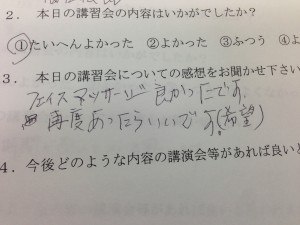 2．本日の講習会の内容はいかがでしたか？
①たいへんよかった ②よかった ③ふつう ④よ
3．本日の講習会についての感想をお聞かせ下さい
フェイスマッサージ良かったです。
再度あったらいいです。(希望)
4．今後どのような内容の講演会等があれば良いと